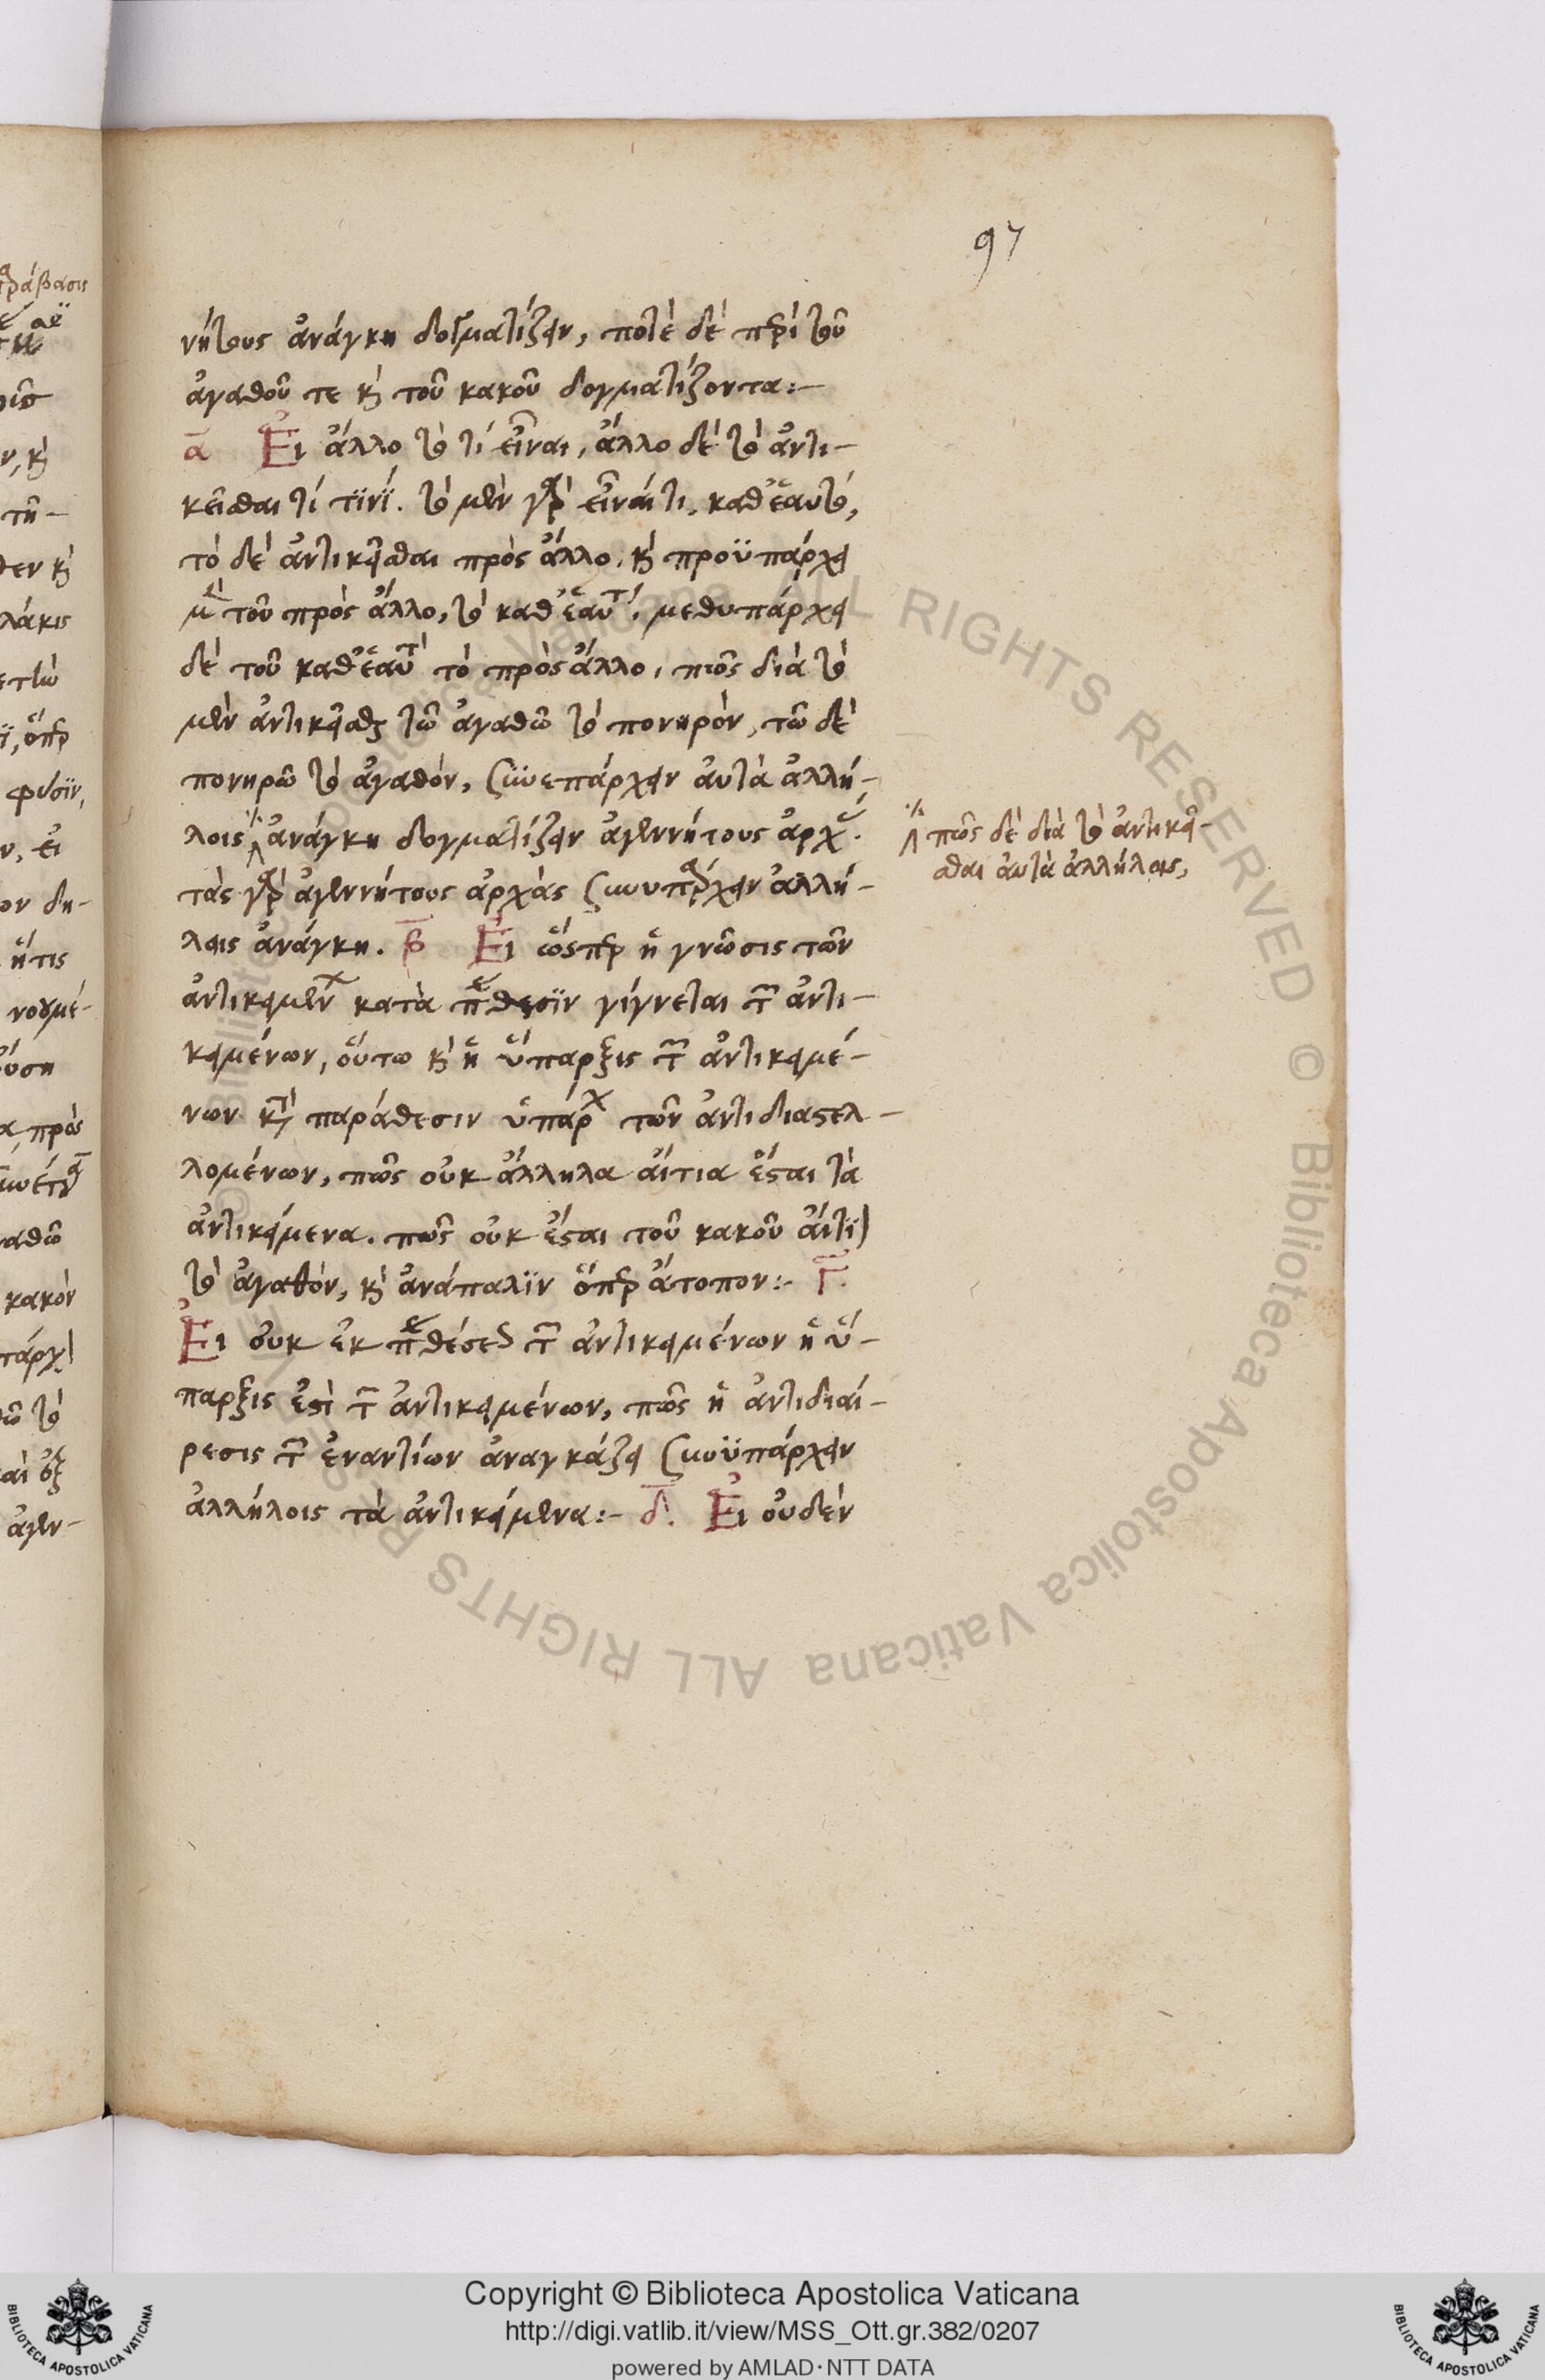 97
νήτους ἀνάγκη δογματίζειν, ποτὲ δὲ περὶ τοῦ
ἀγαθοῦ τε καὶ τοῦ κακοῦ δογματίζοντα:–
α Εἰ ἄλλο τὸ τὶ εἶναι, ἄλλο δὲ τὸ ἀντι–
κεῖσθαι τί τϊνΐ. τὸ μὲν γὰρ εἶναί τι, καθ' ἑαυτό,
τὸ δὲ ἀντικεῖσθαι πρὸς ἄλλο. καὶ προϋπάρχει
μὲν τοῦ πρὸς ἄλλο, τὸ καθ' ἑαυτό, μεθυπάρχει
δὲ τοῦ καθ' ἑαυτὸ τὸ πρὸς ἄλλο, πῶς διὰ τὸ
μὲν ἀντικεῖσθαι τῶ ἀγαθῶ τὸ πονηρόν, τῶ δὲ
πονηρῶ τὸ ἀγαθόν, συϋεπάρχειν αὐτὰ ἀλλή–
λοις ἀνάγκη δογματίζειν ἀγεννήτους ἀρχάς.
τὰς γὰρ ἀγεννήτους ἀρχὰς συνυπάρχειν ἀλλή–
λοις ἀνάγκη. β Εἰ ὥσπερ ἡ γνῶσις τῶν
ἀντικειμένων κατὰ παράθεσϊν γίγνεται τῶν ἀντι–
κειμένων, οὕτω καὶ ἡ ὕπαρξις τῶν ἀντικειμέ–
νων κατὰ παράθεσιν ὑπάρχει τῶν ἀντιδιαστελ–
λομένων, πῶς οὐκ ἄλληλα αἴτια ἔσται τὰ
ἀντικείμενα. πῶς οὐκ ἔσται τοῦ κακοῦ αἴτϊον
τὸ ἀγαθόν, καὶ ἀνάπαλϊν ὅπερ ἄτοπον:– Γ.
Εἰ οὐκ ἐκ παραθέσεως τῶν ἀντικειμένων ἡ ὕ–
παρξις ἐστὶ τῶν ἀντικειμένων, πῶς ἡ ἀντιδιαί–
ρεσις τῶν ἐναντίων ἀναγκάζει συνϋπάρχειν
ἀλλήλοις τὰ ἀντικείμενα:– δ. Εἰ οὐδὲν
πῶς δὲ διὰ τὸ ἀντικεῖ–
σθαι αὐτὰ ἀλλήλοις,
© Biblioteca Apostolica Vaticana ALL RIGHTS RESERVED © Biblioteca Apostolica Vaticana ALL RIGHTS
Copyright © Biblioteca Apostolica Vaticana
http://digi.vatlib.it/view/MSS_Ott.gr.382/0207
powered by AMLAD·NTT DATA
BIBLIOTECA APOSTOLICA VATICANA
BIBLIOTECA APOSTOLICA VATICANA